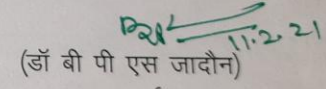 11.2.21
(डॉ बी पी एस जादौन)